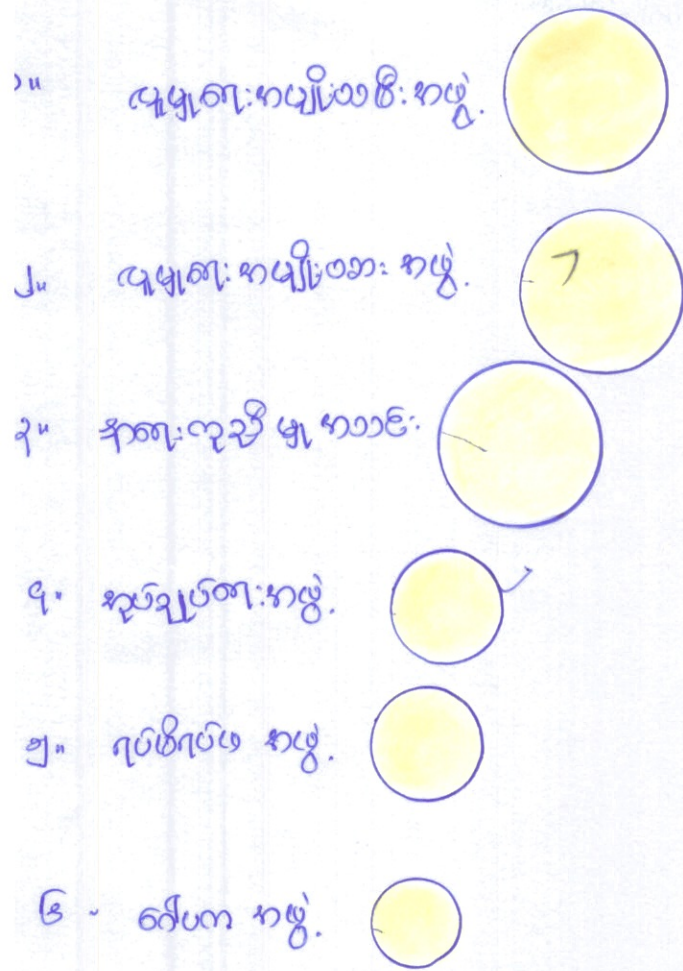 ၁။ လူမှုရေးအမျိုးသမီးအဖွဲ့
၂။ လူမှုရေးအမျိုးသားအဖွဲ့
၃။ နာရေးကူညီမှုအသင်း
၄။ အုပ်ချုပ်ရေးအဖွဲ့
၅။ ရပ်မိရပ်ဖ အဖွဲ့
၆။ ဂေါပက အဖွဲ့